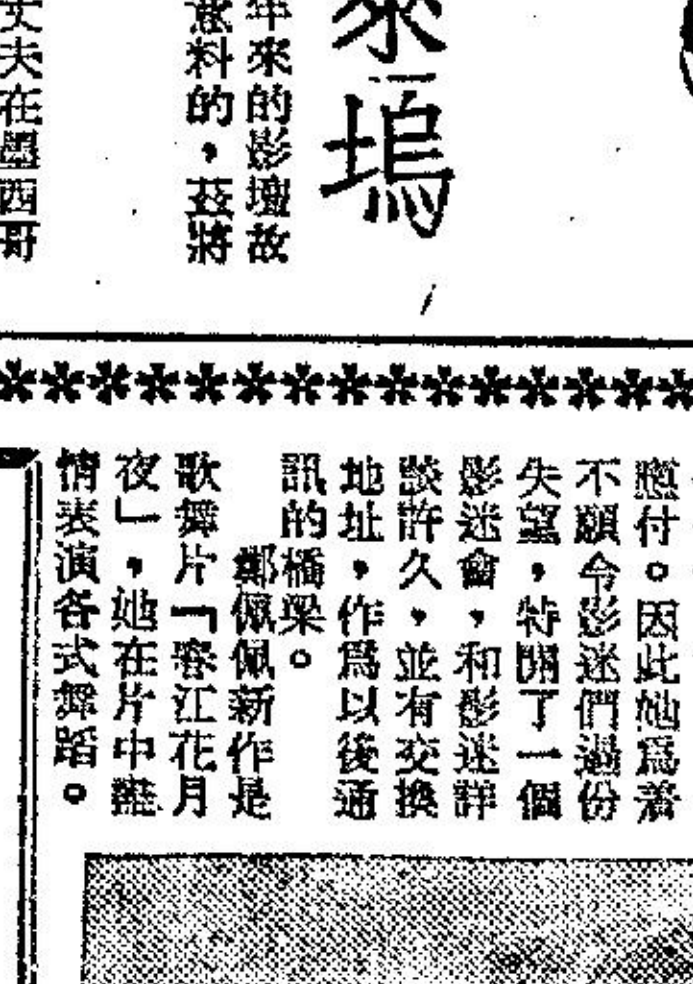 塢
年來的影壇故
意料的，茲將
丈夫在墨西哥
應付。因此她爲着
不願令影迷們過份
失望，特開了一個
影迷會，和影迷詳
談許久，並有交換
地址，作爲以後通
訊的橋梁。
鄭佩佩新作是
歌舞片「春江花月
夜」，她在片中
情表演各式舞蹈。